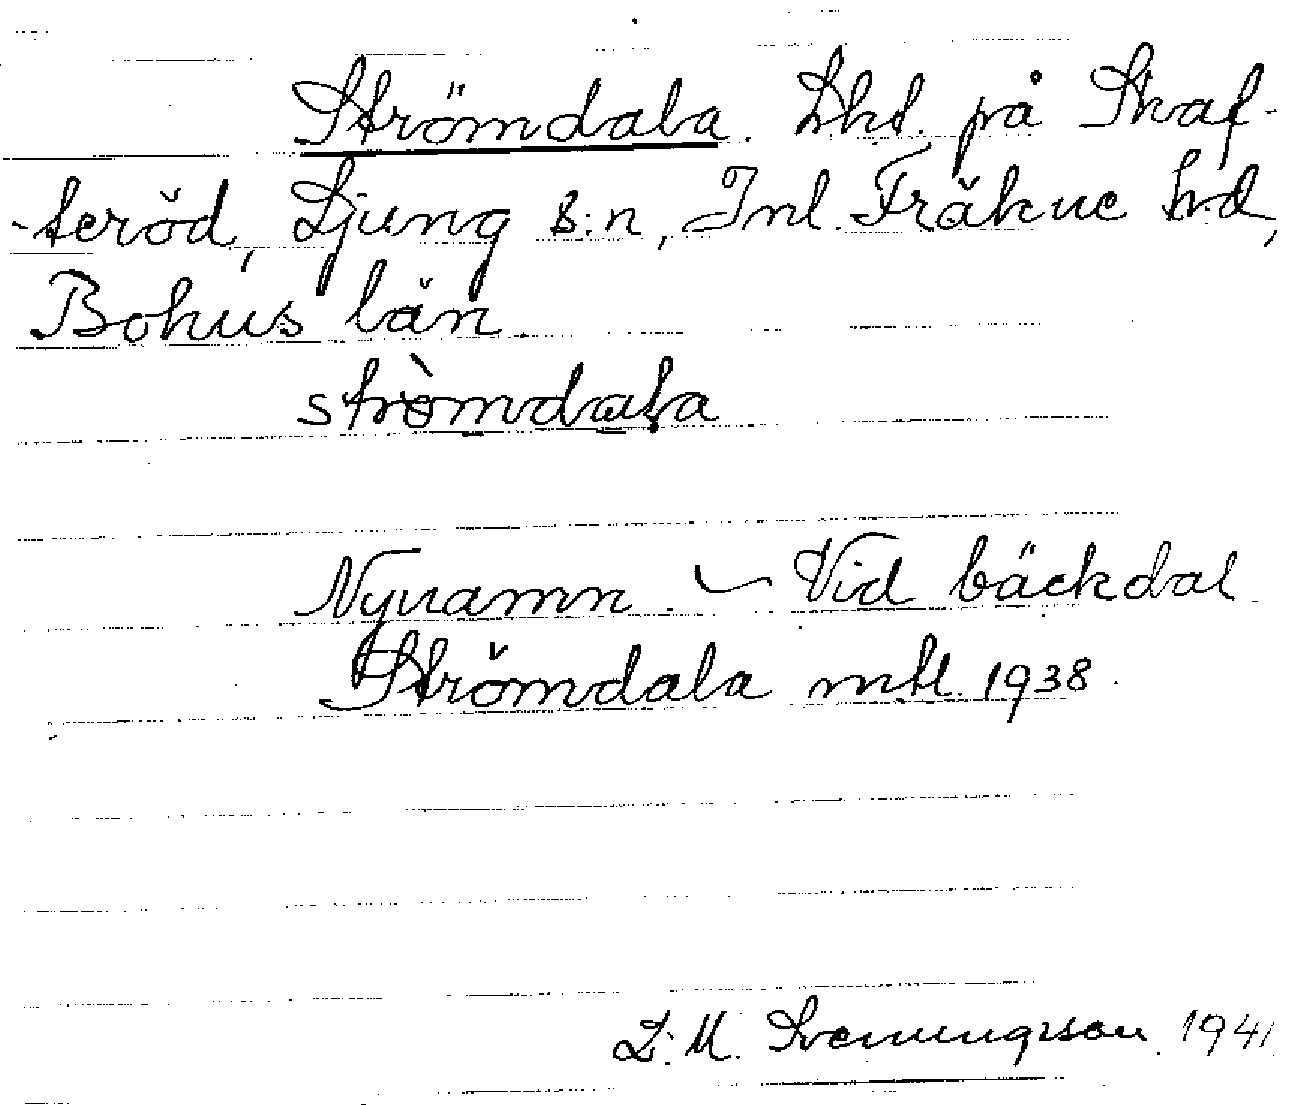 Strömdala. Lht. på Skaf-
-teröd, Ljung s:n, Inl. Fräkne hd,
Bohus län
strò̀mdala
Nynamn. – Vid bäckdal
Strömdala mtl. 1938.
L. M. Svenungsson 1941